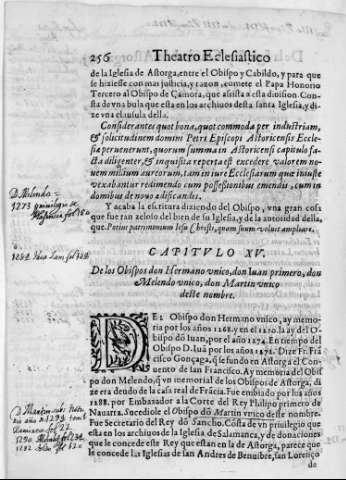 256 Theatro Eclesiastico
de la Iglesia de Astorga, entre el Obispo y Cabildo, y para que
se hiziesse con mas justicia, y razon, comete el Papa Honorio
Tercero al Obispo de Çamora, que assista a esta diuision. Con
sta de vna bula que esta en los archiuos desta santa Iglesia, y di
ze vna clausula della.
Considerantes quot bona, quot commoda per industriam,
& solicitudinem domini Petri Episcopi Astoricensis Eccle
siæ peruenerunt, quorum summa in Astoricensi capitulo fa
cta diligenter, & inquisita reperta est excedere valorem no
uem millium aureorum, tam in iure Ecclesiarum que iniuste
vexabantur redimendo cum possessionibus emendis, cum in
domibus de nouo ædificandis.
Y acaba la escritura diziendo del Obispo, vna gran cosa
que fue tan zeloso del bien de su Iglesia, y de la autoridad della,
que, Potius patrimonium Iesu Christi, quam suum voluit ampliare.
CAPITVLO XV.
De los Obispos don Hermano vnico, don Iuan primero, don
Melendo vnico, don Martin vnico
deste nombre.
DEl Obispo don Hermano vnico, ay me
moria por los años 1268. y en el 1270. la ay del O-
bispo dō Iuan, por el año 1274. En tiempo del
Obispo D. Iuā por los años 1272. Dize Fr. Frā
cisco Gonçaga, q̄ se fundo en Astorga el Con
uento de san Francisco. Ay memoria del Obis
po don Melendo, q̄ vn memorial de los Obispos de Astorga, di
ze era deudo de la casa real de Frācia. Fue embiado por los años
1288. por Embaxador a la Corte del Rey Philipo primero de
Nauarra. Sucediole el Obispo dō Martin vnico deste nombre.
Fue Secretario del Rey dō Sancho. Costa de vn priuilegio que
esta en los archiuos de la Iglesia de Salamanca, y de donaciones
que le concede este Rey que estan en la de Astorga, parece que
le concede las Iglesias de san Andres de Benuibre, san Lorenço
de
D. Melendo
1273